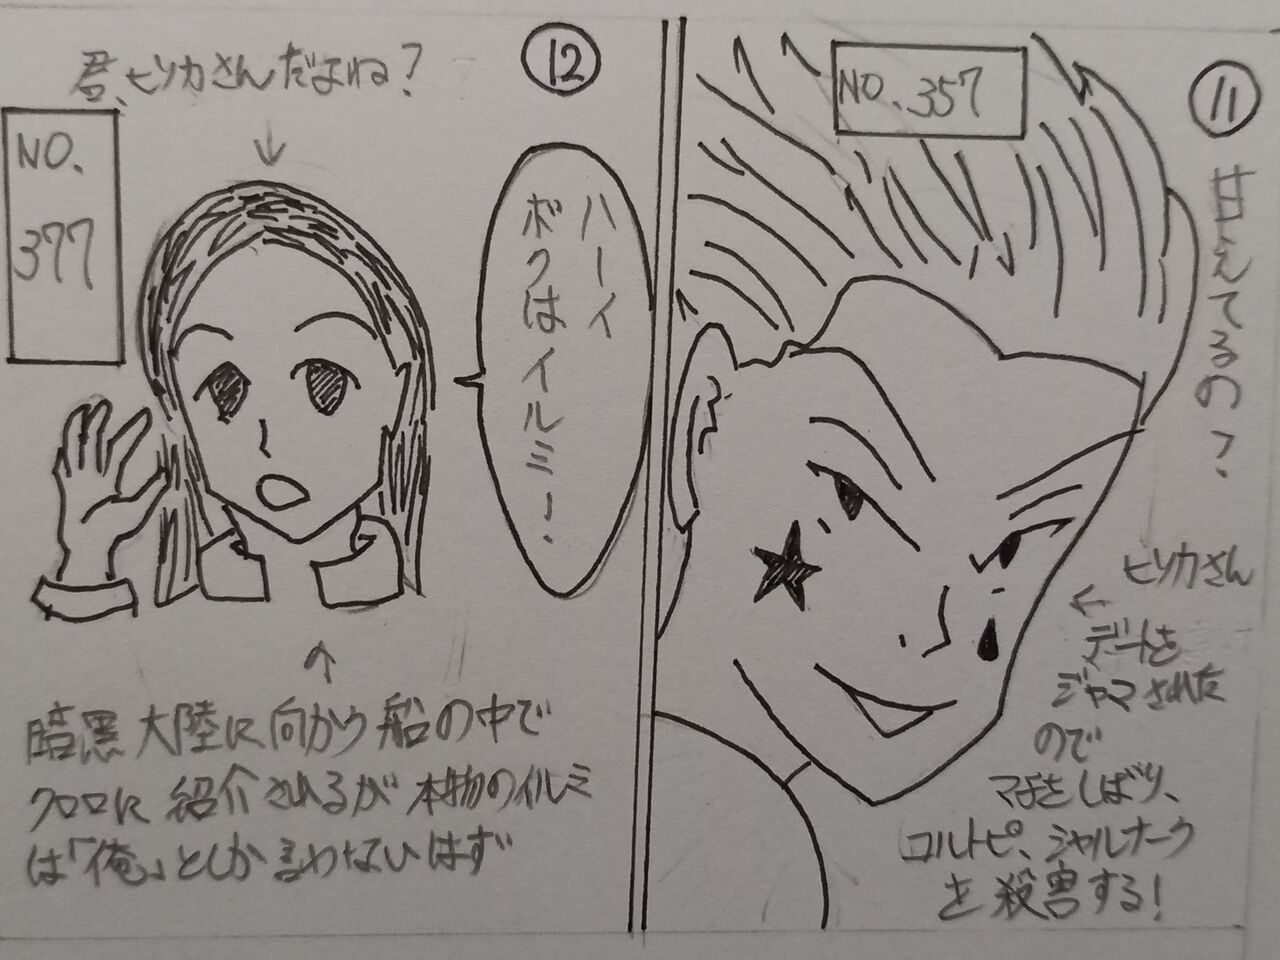 ⑪
NO. 357
甘えてるの?
ヒソカさん
←
デートを
ジャマされた
ので
マチをしばり、
コルトピ、シャルナーク
を殺害する!
⑫
君、ヒソカさんだよね?
↓
NO.
377
ハーイ
ボクはイルミー.
↑
暗黒大陸に向かう船の中で
クロロに紹介されるが本物のイルミ
は「俺」としか言わないはず